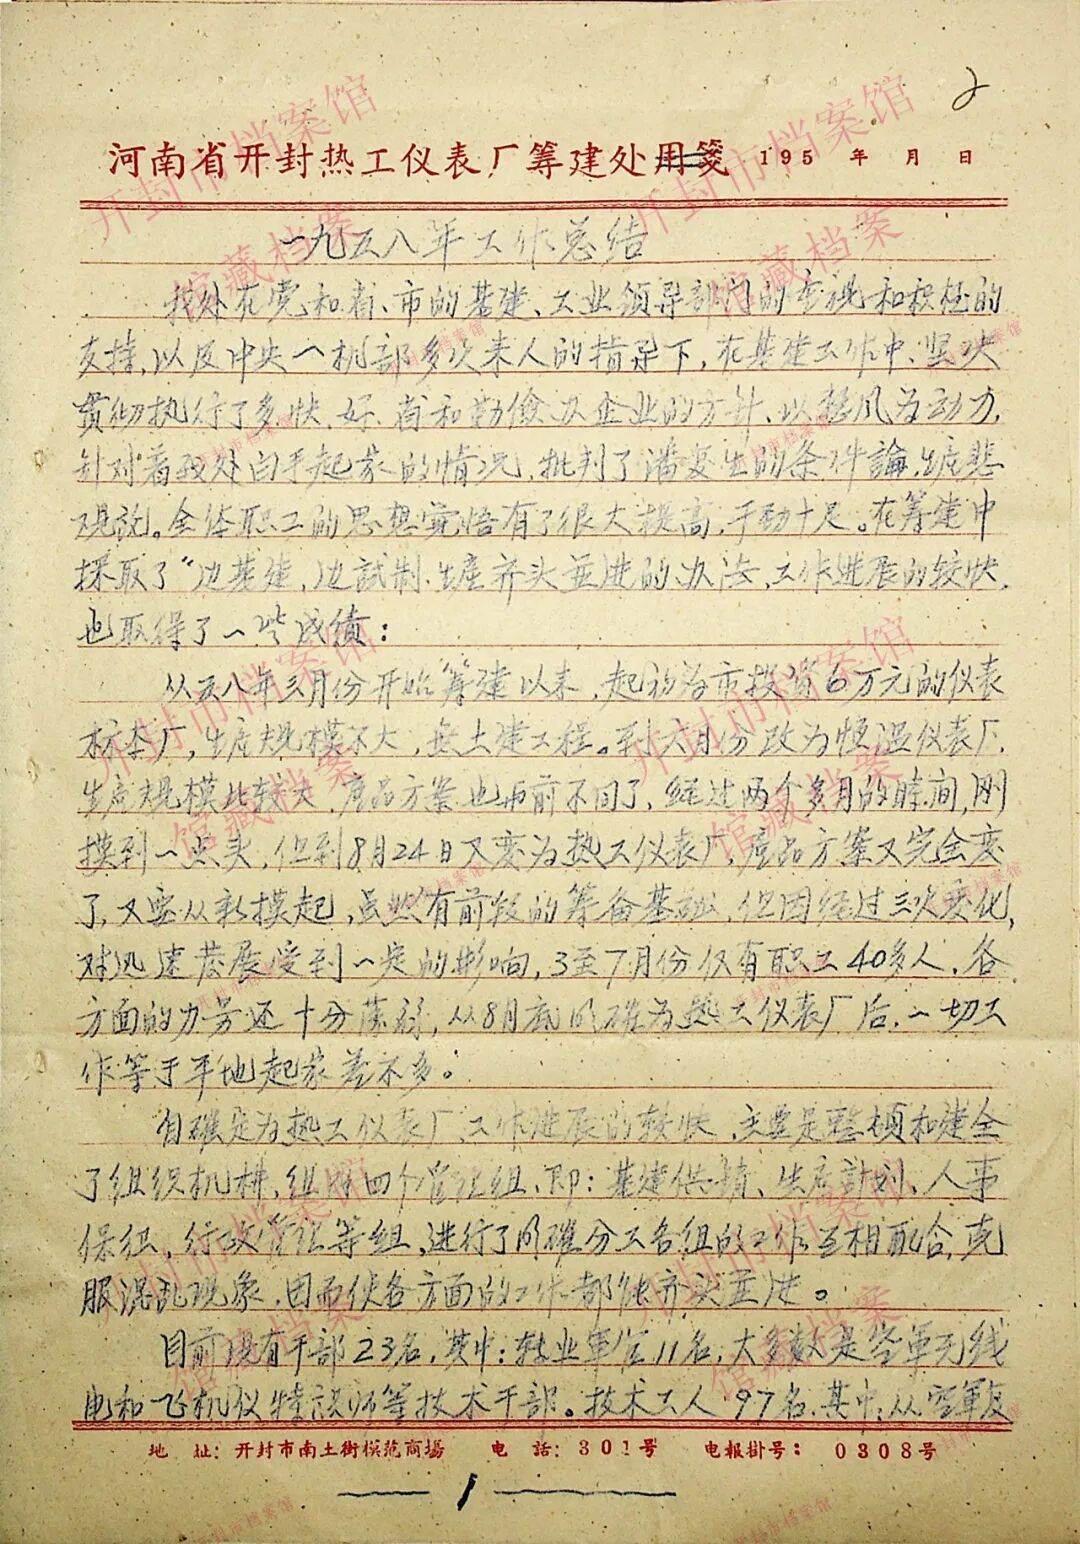 2
河南省开封热工仪表厂筹建处用笺 195 年 月 日
一九五八年工作总结
我处在党和省、市的基建、工业领导部门的重视和积极的
支持,以及中央一机部多次来人的指导下,在基建工作中、坚决
贯彻执行了多、快、好、省和勤俭办企业的方针、以整风为动力,
针对着我处白手起家的情况,批判了潘复生的条件論,生産悲
观説。全体职工的思想覚悟有了很大提高,干劲十足。在筹建中
採取了“边基建,边試制、生産齐头並进的办法,工作进展的较快,
也取得了一些成绩:
从五八年三月份开始筹建以来,起初为市投资6万元的仪表
标本厂,生産规模不大,無土建工程。到六月份改为恒温仪表厂,
生産规模比较大,産品方案也与前不同了,经过两个多月的時间,刚
摸到一点头,但到8月24日又变为热工仪表厂,産品方案又完全变
了,又要从新摸起,虽然有前段的筹备基础,但因经过三次变化,
对迅速发展受到一定的影响,3至7月份仅有职工40多人,各
方面的力量还十分薄弱,从8月底明確为热工仪表厂后,一切工
作等于平地起家差不多。
自確定为热工仪表厂、工作进展的较快,主要是整顿和建全
了组织机構,组成四个管理组、即:基建供销、生産計划、人事
保组,行政管理等组,进行了明確分工各组的工作互相配合,克
服混乱现象,因而使各方面的工作都能齐头並进。
目前设有干部23名,其中:转业軍官11名,大多数是空軍无线
电和飞机仪特設师等技术干部。技术工人97名,其中:从空軍复
地 址:开封市南土街模范商場 电 話:301号 电報掛号:0308号
1
开封市档案馆
馆藏档案